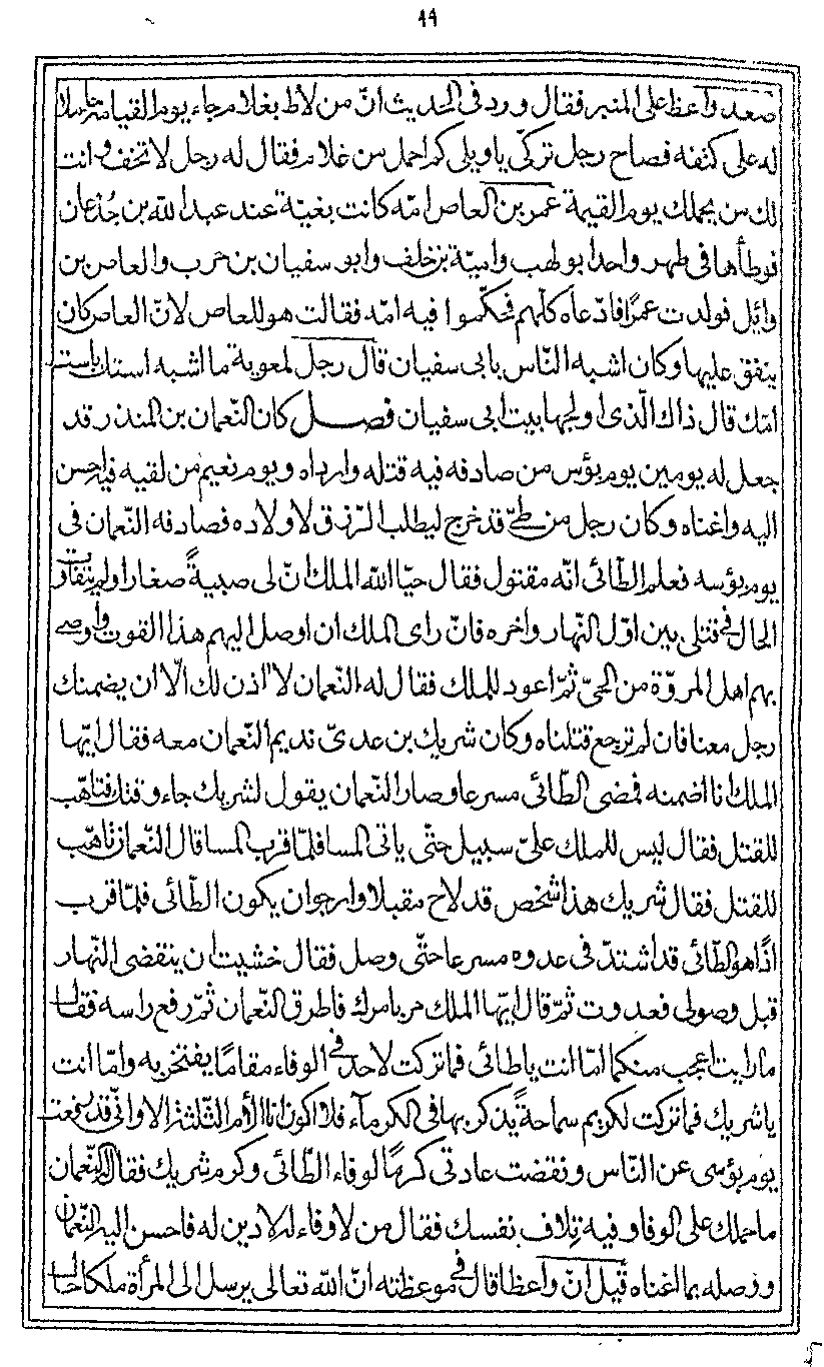 ٤٤
صعد واعظ على المنبر فقال ورد فى الحديث انّ من لاط بغلام جاء يوم القيامة حاملا
له على كتفه فصاح رجل تركىّ يا ويلى كم احمل من غلام فقال له رجل لا تخف وانت
لك من يحملك يوم القيمة عمر بن العاص امّه كانت بغيّة عند عبد الله بن جُذعان
فوطأها فى طهر واحد ابو لهب واميّة بن خلف وابو سفيان بن حرب والعاص بن
وائل فولدت عمرًا فادّعاه كلّهم فحكّموا فيه امّه فقالت هو للعاص لانّ العاص كان
ينفق عليها وكان اشبه النّاس بابى سفيان قال رجل لمعوية ما اشبه استك باست
امّك قال ذاك الّذى اولجها بيت ابى سفيان فصـــل كان النّعمان بن المنذر قد
جعل له يومين يوم بؤس من صادفه فيه قتله وارداه ويوم نعيم من لقيه فيه احسن
اليه واغناه وكان رجل من طىّ قد خرج ليطلب الرّزق لاولاده فصادفه النّعمان فى
يوم بؤسه فعلم الطّائى انّه مقتول فقال حيّا الله الملك انّ لى صبيةً صغارا ولم يتفاوت
الحال فى قتلى بين اوّل النّهار واخره فانّ راى الملك ان اوصل اليهم هذا القوت واوصى
بهم اهل المروّة من الحىّ ثمّ اعود للملك فقال له النّعمان لا اذن لك الّا ان يضمنك
رجل معنا فان لم ترجع قتلناه وكان شريك بن عدىّ نديم النّعمان معه فقال ايّها
الملك انا اضمنه فمضى الطّائى مسرعا وصار النّعمان يقول لشريك جاء وقتك فتاهّب
للقتل فقال ليس للملك علىّ سبيل حتّى ياتى المسا فلمّا قرب المسا قال النّعمان تاهّب
للقتل فقال شريك هذا شخص قد لاح مقبلا وارجو ان يكون الطّائى فلمّا قرب
اذًا هو الطّائى قد اشتدّ فى عدوه مسرعا حتّى وصل فقال خشيت ان ينقضى النّهار
قبل وصولى فعدوت ثمّ قال ايّها الملك مر بامرك فاطرق النّعمان ثمّ رفع راسه فقال
ما رايت اعجب منكما امّا انت يا طائى فما تركت لاحد فى الوفاء مقامًا يفتخر به وامّا انت
يا شريك فما تركت لكريم سماحةً يذكر بها فى الكرمآء فلا اكون انا الأم الثّلثة الا وانّى قد رفعت
يوم بؤسى عن النّاس ونقضت عادتى كرمًا لوفاء الطّائى وكرم شريك فقال له النّعمان
ما حملك على الوفا وفيه تلاف نفسك فقال من لا وفاء له لا دين له فاحسن اليه النّعمان
ووصله بما اغناه قيل انّ واعظا قال فى موعظته انّ الله تعالى يرسل الى المرأة ملكا خاليا